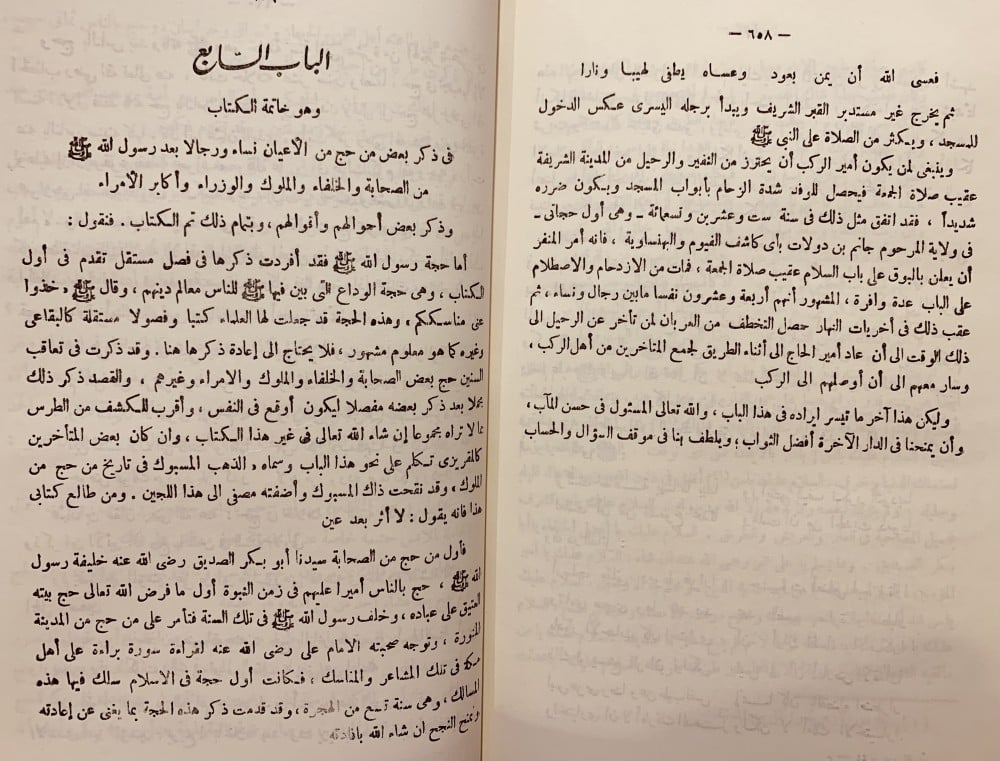 — ٦٥٨ —
فعسى الله أن يمن بعود وعساه يطفى لهيبا ونارا
ثم يخرج غير مستدبر القبر الشريف ويبدأ برجله اليسرى عكس الدخول
للمسجد ، ويكثر من الصلاة على النبي ﷺ
وينبغى لمن يكون أمير الركب أن يحترز من النفير والرحيل من المدينة الشريفة
عقيب صلاة الجمعة فيحصل للوفد شدة الزحام بأبواب المسجد ويكون ضرره
شديداً ، فقد اتفق مثل ذلك فى سنة ست وعشرين وتسعمائة ـ وهى أول حجاتى ـ
فى ولاية المرحوم جانم بن دولات بأى كاشف الفيوم والبهنساوية ، فانه أمر المنفر
أن يعلن بالبوق على باب السلام عقيب صلاة الجمعة ، فمات من الازدحام والاصطلام
على الباب عدة وافرة ، المشهور أنهم أربعة وعشرون نفسا مابين رجال ونساء ، ثم
عقب ذلك فى أخريات النهار حصل التخطف من العربان لمن تأخر عن الرحيل الى
ذلك الوقت الى أن عاد أمير الحاج الى أثناء الطريق لجمع المتأخرين من أهل الركب ،
وسار معهم الى أن أوصلهم الى الركب
وليكن هذا آخر ما تيسر ايراده فى هذا الباب ، والله تعالى المسئول فى حسن المآب ،
وأن يمنحنا فى الدار الآخرة أفضل الثواب ، ويلطف بنا فى موقف السؤال والحساب
الباب السابع
وهو خاتمة الكتاب
فى ذكر بعض من حج من الأعيان نساء ورجالا بعد رسول الله ﷺ
من الصحابة والخلفاء والملوك والوزراء وأكابر الأمراء
وذكر بعض أحوالهم وأقوالهم ، وبتمام ذلك تم الكتاب . فنقول :
أما حجة رسول الله ﷺ فقد أفردت ذكرها فى فصل مستقل تقدم فى أول
الكتاب ، وهى حجة الوداع التى بين فيها ﷺ للناس معالم دينهم ، وقال ﷺ « خذوا
عنى مناسككم ، وهذه الحجة قد جعلت لها العلماء كتبا وفصولا مستقلة كالبقاعى
وغيره كما هو معلوم مشهور ، فلا يحتاج الى إعادة ذكرها هنا . وقد ذكرت فى تعاقب
السنين حج بعض الصحابة والخلفاء والملوك والامراء وغيرهم ، والقصد ذكر ذلك
مجملا بعد ذكر بعضه مفصلا ليكون أوقع فى النفس ، وأقرب للمكشف من الطرس
مما لا تراه مجموعا إن شاء الله تعالى فى غير هذا الكتاب ، وان كان بعض المتأخرين
كالمقريزى تكلم على نحو هذا الباب وسماه « الذهب المسبوك فى تاريخ من حج من
الملوك ، وقد نقحت ذاك المسبوك وأضفته مصفى الى هذا اللجين . ومن طالع كتابى
هذا فانه يقول : لا أثر بعد عين
فأول من حج من الصحابة سيدنا أبو بكر الصديق رضى الله عنه خليفة رسول
الله ﷺ ، حج بالناس أميرا عليهم فى زمن النبوة أول ما فرض الله تعالى حج بيته
العتيق على عباده ، وخلف رسول الله ﷺ فى تلك السنة فتأمر على من حج من المدينة
المنورة ، وتوجه صحبته الامام على رضى الله عنه لقراءة سورة براءة على أهل
مكة فى تلك المشاعر والمناسك ، فكانت أول حجة فى الاسلام سلك فيها هذه
المسالك ، وهى سنة تسع من الهجرة ، وقد قدمت ذكر هذه الحجة بما يغنى عن إعادته
ونمنح النجح ان شاء الله بافادته